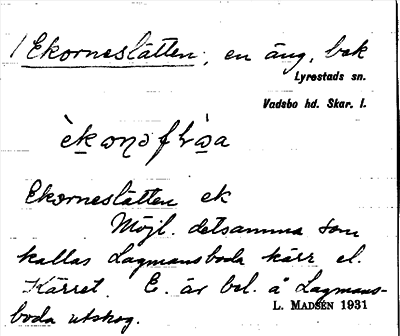 / Ekorneslåtten, en äng, bek
Lyrestads sn.
Vadsbo hd. Skar. l.
Ekorneslåtten ek
Möjl. detsamma som
kallas Lagmansboda kärr el.
Kärret. E. är bel. å Lagmans-
boda utskog.
L. MADSÉN 1931